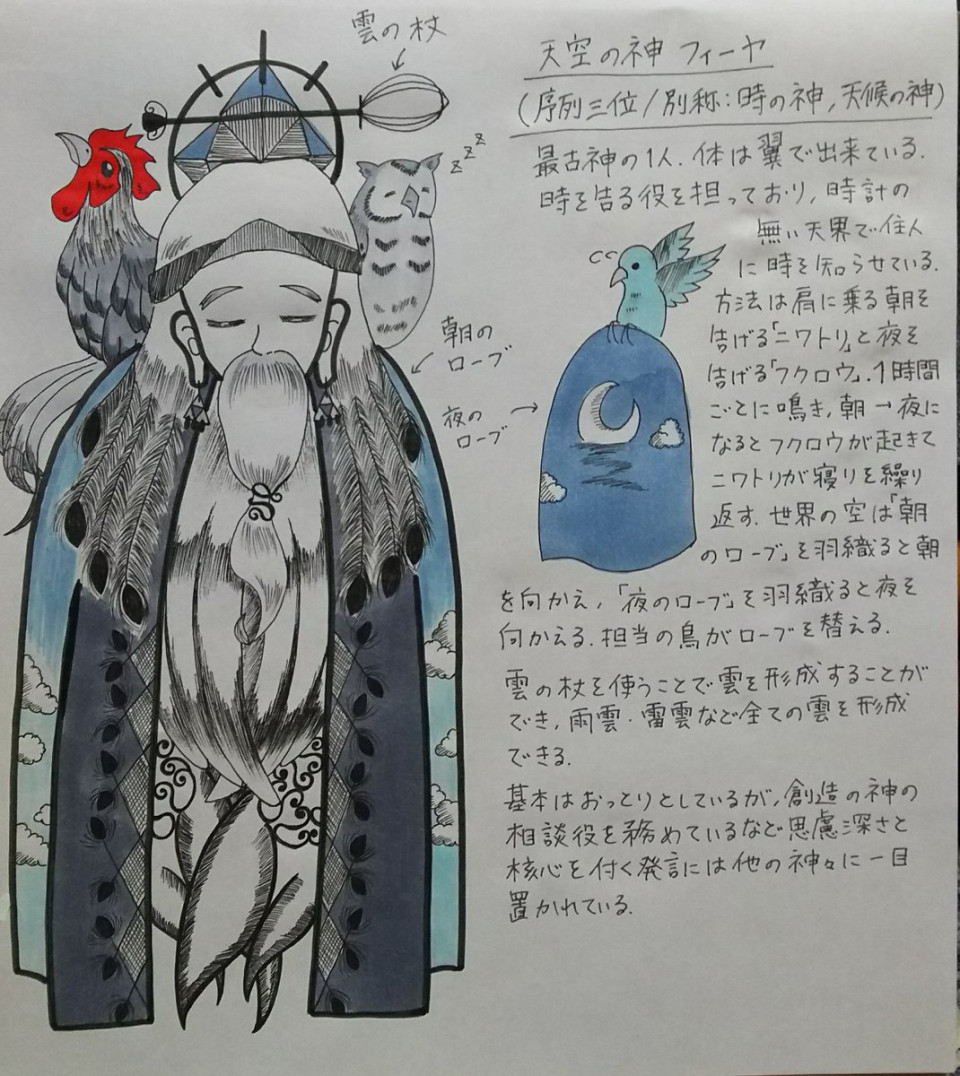 雲の杖
z z z
朝の
ローブ
夜の
ローブ
天空の神 フィーヤ
(序列三位/別称:時の神,天候の神)
最古神の1人.体は翼で出来ている.
時を告る役を担っており,時計の
無い天界で住人
に時を知らせている.
方法は肩に乗る朝を
告げる「ニワトリ」と夜を
告げる「フクロウ」.1時間
ごとに鳴き,朝→夜に
なるとフクロウが起きて
ニワトリが寝りを繰り
返す.世界の空は「朝
のローブ」を羽織ると朝
を向かえ,「夜のローブ」を羽織ると夜を
向かえる.担当の鳥がローブを替える.
雲の杖を使うことで雲を形成することが
でき,雨雲・雷雲など全ての雲を形成
できる.
基本はおっとりとしているが,創造の神の
相談役を務めているなど思慮深さと
核心を付く発言には他の神々に一目
置かれている.